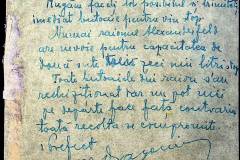 Rugăm faceți tot posibilul și trimiteți
imediat butoaie pentru vin Stop
Numai raionul Alexanderfeld
are nevoie pentru capacitatea de
două sute zeci mii litri Stop
Toate butoaiele din raion s'au
rechiziționat iar nu pot nici
pe departe face față contrariu
toată recolta se compromite
Prefect